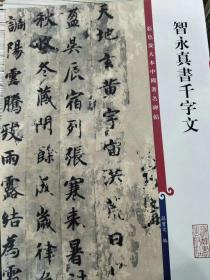 智永真書千字文
彩色放大本中國著名碑帖
天地玄黃宇宙洪荒日
盈昃辰宿列張寒來暑
秋收冬藏閏餘成歲律
調陽雲騰致雨露結